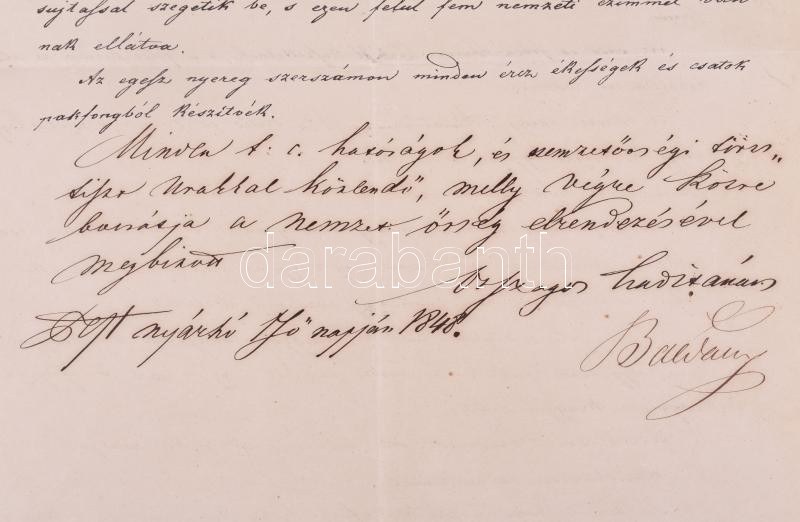 sujtással szegetik be, s ezen felül fem nemzeti czimmel
nak ellátva.
Az egesz nyereg szerszámon minden ércz ékességek és csatok
pakfongból készítvék.
Minden t. c. hatóságok, és nemzetőrségi törzs„
tiszt Urakkal közlendő, melly végre közre
bocsátja a nemzet őrség elrendezésével
megbizott
Országos haditanács
Pest nyárhó 7ő napján 1848.
Baldacci
darabanth